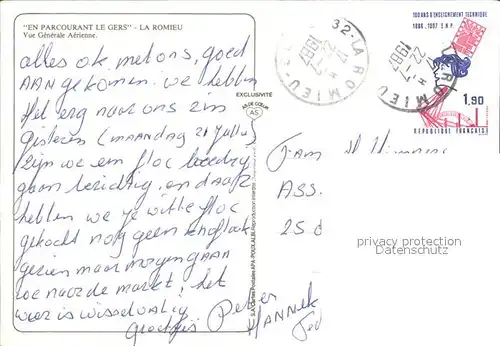 "EN PARCOURANT LE GERS" - LA ROMIEU
Vue Générale Aérienne.
alles ok met ons, goed
AAN gekomen. we hebben
Het erg naar ons zin
gisteren (maandag 21 Jullie)
Zijn we een floc boerdery
gaan bezichtig, en daar
hebben we je witte floc
gekocht nog geen knoflook
gezien maar morgen gaan
we naar de markt, het
weer is wisselvallig
Groetjes Peter
HANNEK
EXCLUSIVITÉ
AS DE CŒUR
AS
32-LA ROMIEU
17 H
22-7
1987
100 ANS D'ENSEIGNEMENT TECHNIQUE
1886-1987 E.N.P.
1,90
REPUBLIQUE FRANÇAISE
Fam
ASS.
25
privacy protection
Datenschutz